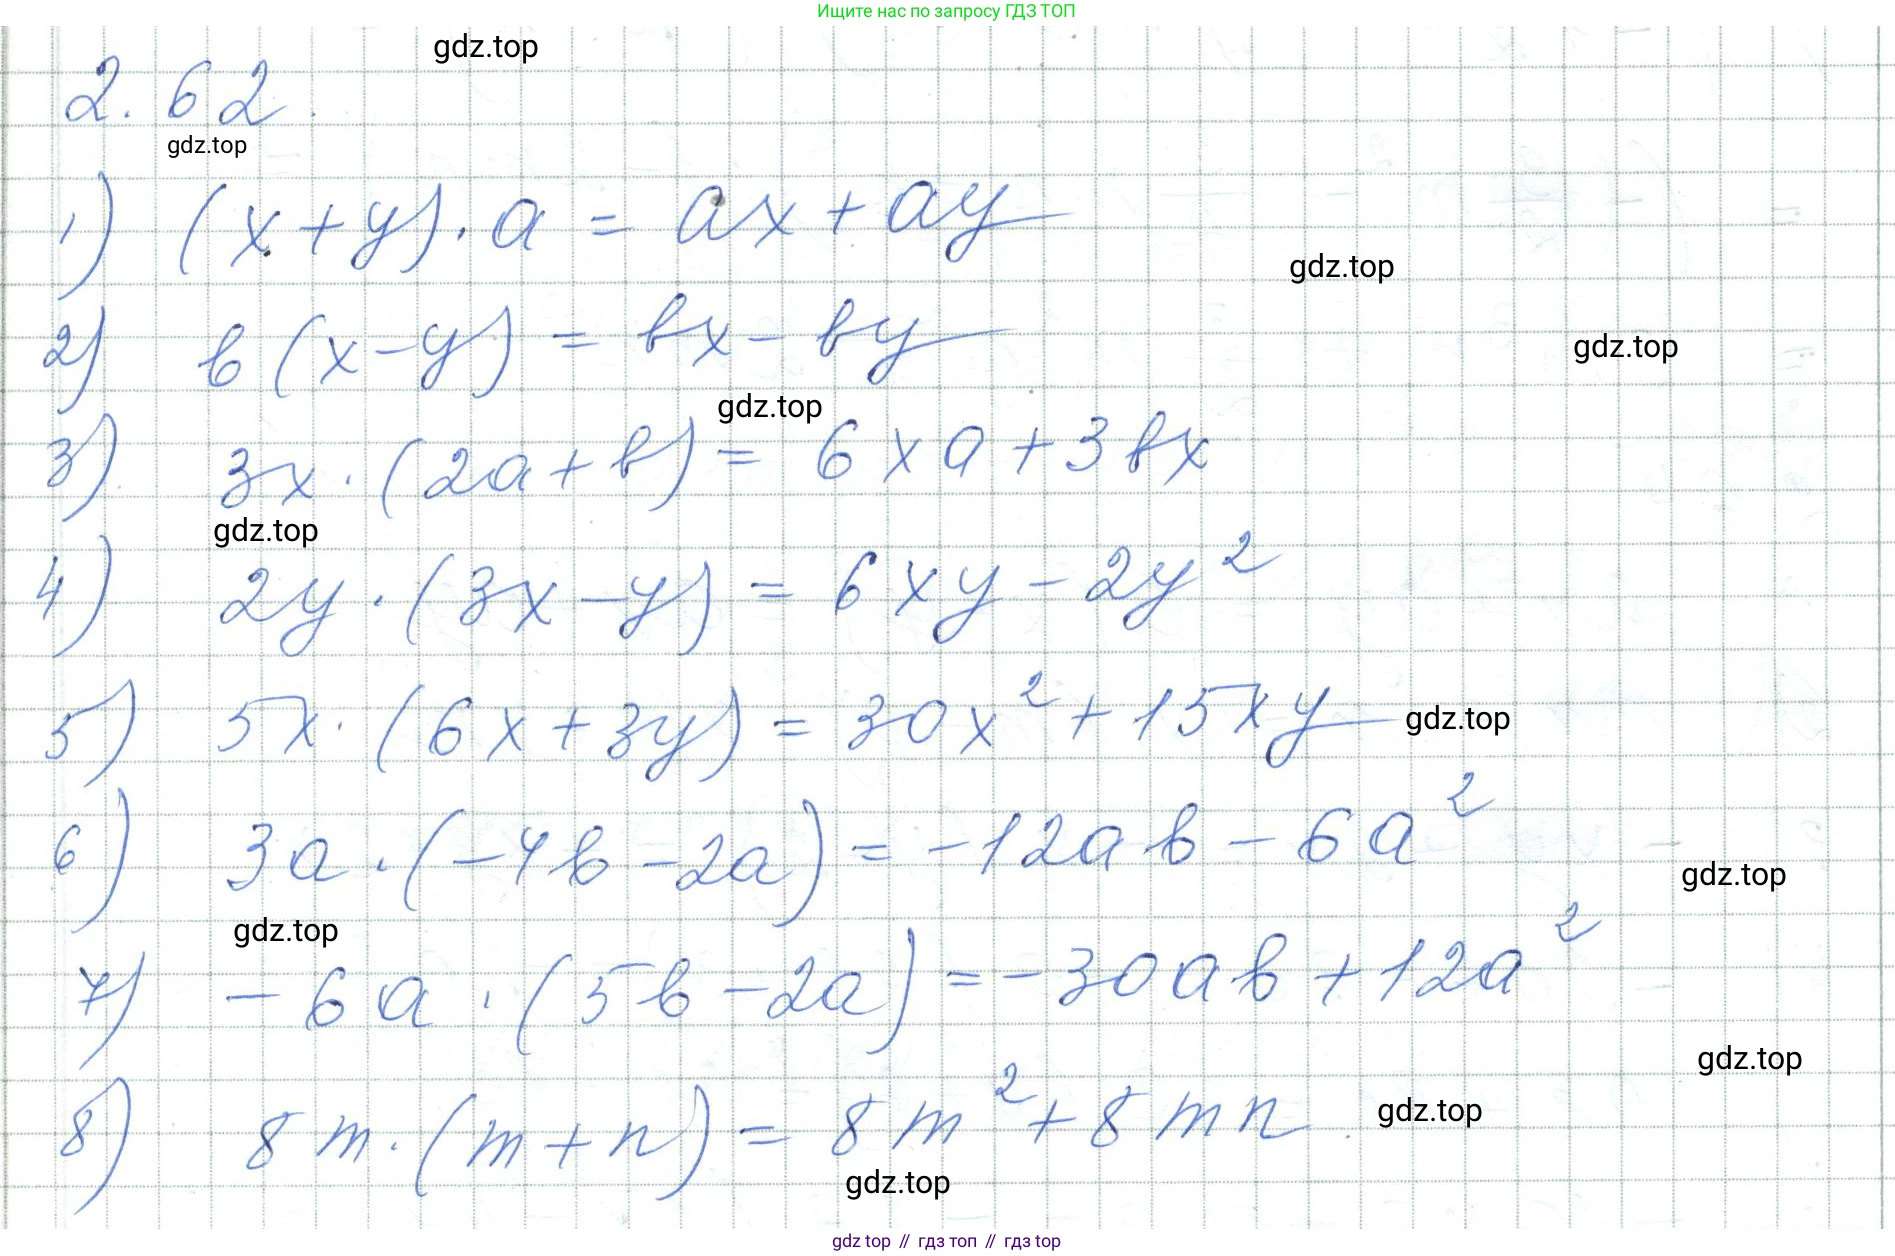 Ищите нас по запросу ГДЗ ТОП
gdz.top
2.62.
gdz.top
1) (x+y)·a = ax+ay
gdz.top
2) b(x-y) = bx-by
gdz.top
gdz.top
3) 3x·(2a+b) = 6xa+3bx
gdz.top
4) 2y·(3x-y) = 6xy-2y²
5) 5x·(6x+3y) = 30x²+15xy
gdz.top
6) 3a·(-4b-2a) = -12ab-6a²
gdz.top
gdz.top
7) -6a·(5b-2a) = -30ab+12a²
gdz.top
8) 8m·(m+n) = 8m²+8mn.
gdz.top
gdz.top
gdz top // гдз топ // гдз top